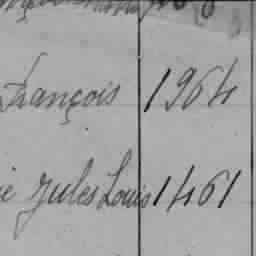 François 1964
Jules Louis 1461